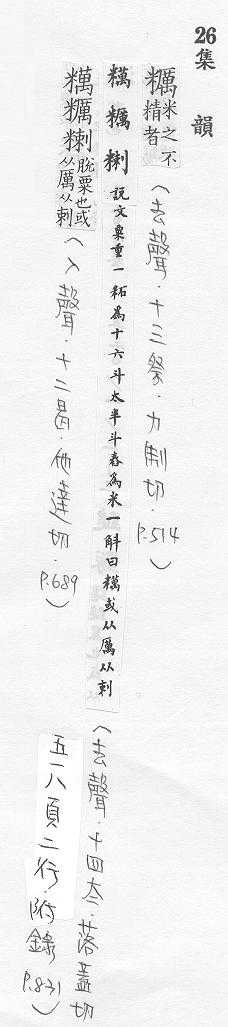 26 集韻
糲米之不精者（去聲．十三祭．力制切．P.514）
糲 𥽗 粝 說文粟重一䄷為十六斗太半斗舂為米一斛曰糲或从厲从剌（去聲．十四太．落蓋切
五一八頁二行．附錄P.831）
脫粟也或从厲从剌（入聲．十二曷．他達切．P.689）